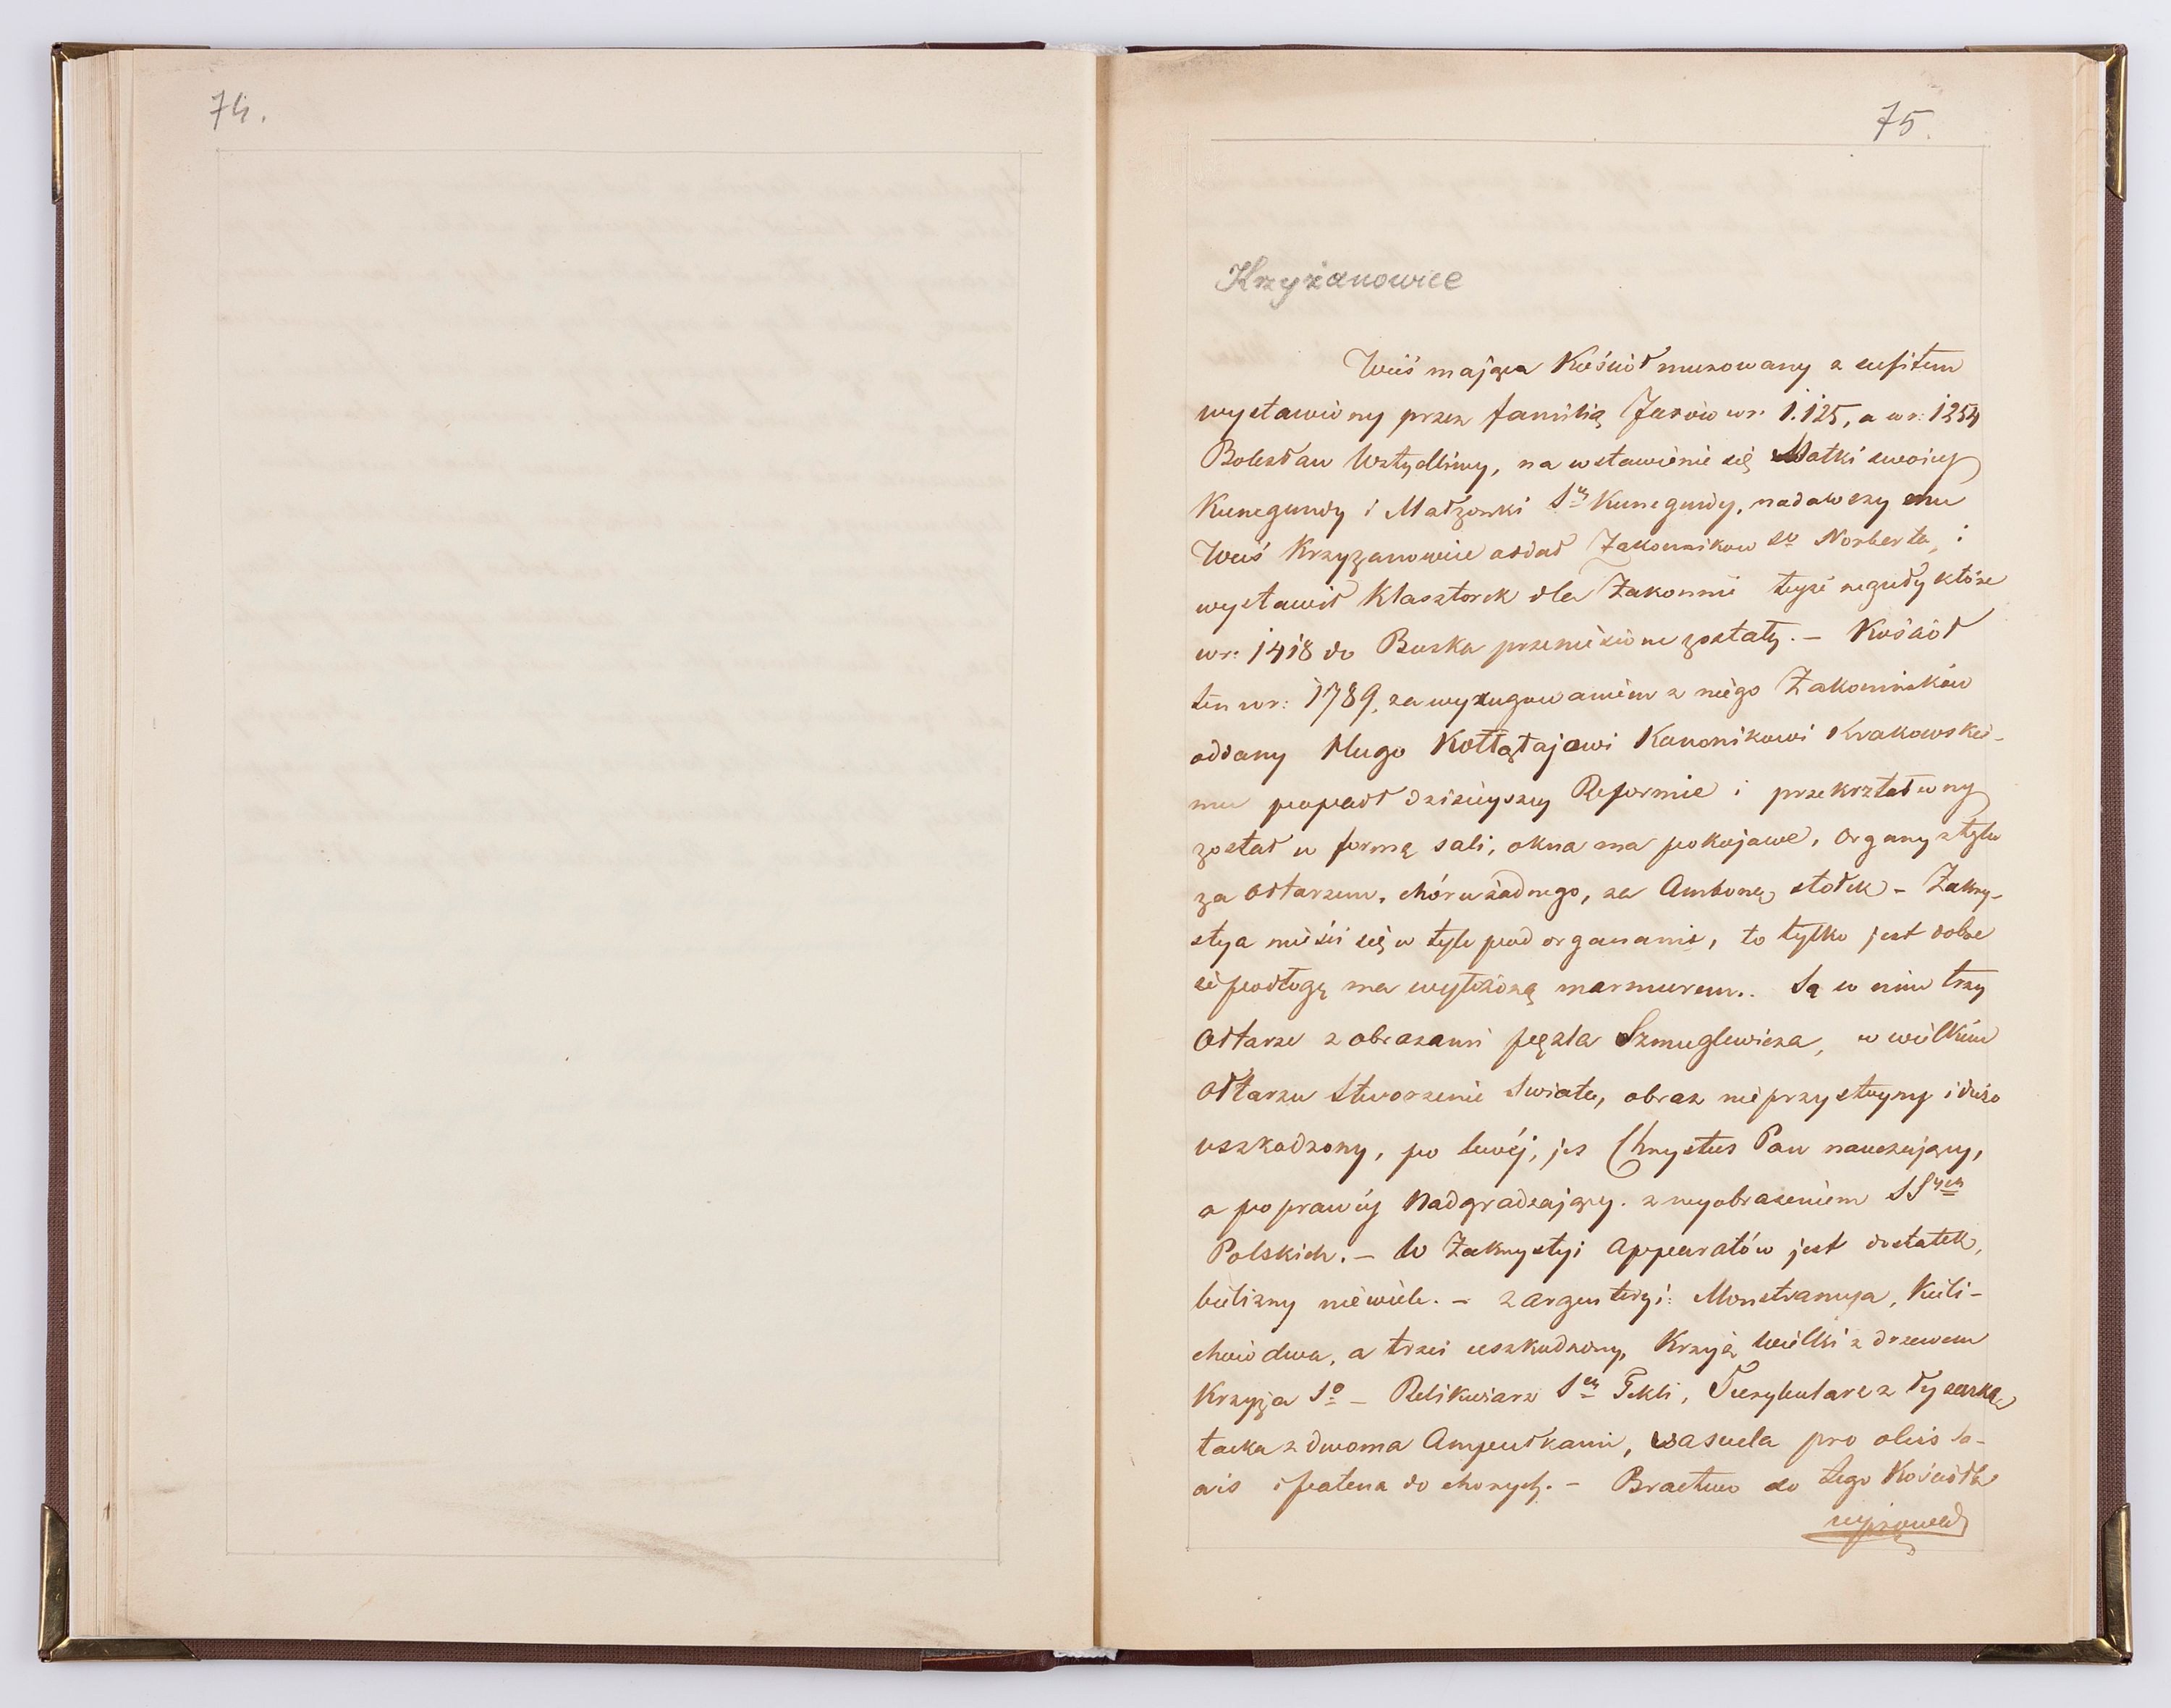 74.
75.
Krzyżanowice
Wieś mająca Kościół murowany z sufitem
wystawiony przez familią Jaxów w r: 1.125, a w r: 1254
Bolesław Wstydliwy, na wstawienie się Matki swoiey
Kunegundy i Małżonki S^ey Kunegundy, nadawszy mu
Wieś Krzyżanowice oddał Zakonników S^o Norberta, i
wystawił Klasztorek dla Zakonnic teyże reguły które
w r: 1418 do Buska przeniesione zostały. – Kościół
ten w r: 1789, za wyrugowaniem z niego Zakonników
oddany Hugo Kołłątajowi Kanonikowi Krakowskie-
mu popadł dzisieyszey Reformie i przekształcony
został w formę sali, okna ma pokojowe, Organy z tyłu
za Ołtarzem, chóru żadnego, za Ambonę stołek – Zakry-
stya mieści się w tyle pod organami, to tylko jest dobre
że podłogę ma wyłożoną marmurem.. Są w nim trzy
Ołtarze z obrazami pęzla Szmuglewicza, w wielkim
Ołtarzu Stworzenie Swiata, obraz nieprzystoyny i dużo
uszkodzony, po lewéj, jes Chrystus Pan nauczający,
a po prawéj Nadgradzający. z wyobrażeniem SS^tych
Polskich. – W Zakrystyi Apparatów jest dostatek,
bielizny niewiele. – z argenteryi: Monstrancya, Kieli-
chów dwa, a trzeci uszkodzony, Krzyż wielki z drzewem
Krzyża S^o – Relikwiarz S^ey Tekli, Turybularz z łyżeczką
tacka z dwoma Ampułkami, vascula pro oleis Sa-
cris i patena do chorych. – Bractwo do tego Kościoła
wprowad